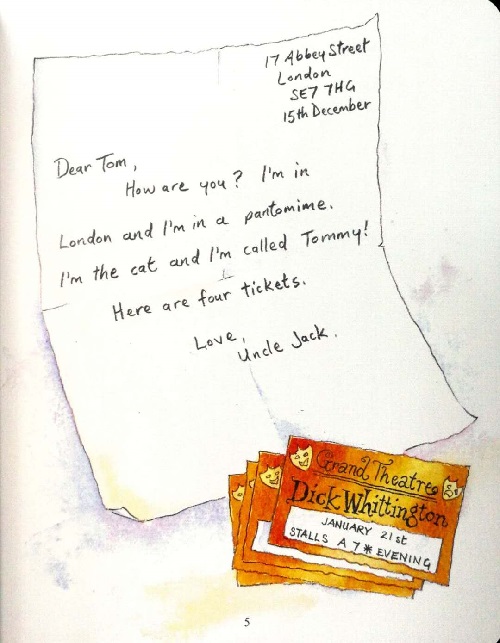 17 Abbey Street
London
SE7 7HG
15th December
Dear Tom,
How are you? I'm in
London and I'm in a pantomime.
I'm the cat and I'm called Tommy!
Here are four tickets.
Love,
Uncle Jack.
Grand Theatre
Dick Whittington
JANUARY 21st
STALLS A 7 * EVENING
5